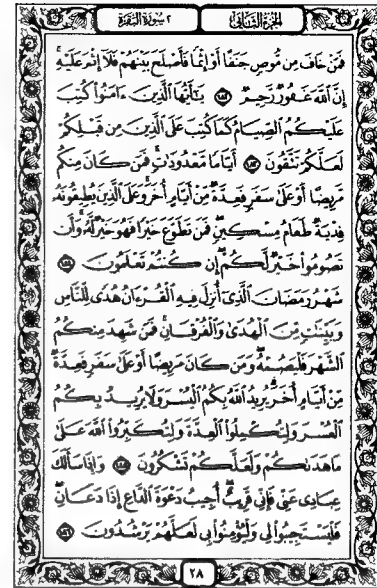 الجزء الثاني
٢ سورة البقرة
فَمَنْ خَافَ مِن مُّوصٍ جَنَفًا أَوْ إِثْمًا فَأَصْلَحَ بَيْنَهُمْ فَلَا إِثْمَ عَلَيْهِ
إِنَّ اللَّهَ غَفُورٌ رَّحِيمٌ ١٨٢ يَا أَيُّهَا الَّذِينَ ءَامَنُوا كُتِبَ
عَلَيْكُمُ الصِّيَامُ كَمَا كُتِبَ عَلَى الَّذِينَ مِن قَبْلِكُمْ
لَعَلَّكُمْ تَتَّقُونَ ١٨٣ أَيَّامًا مَّعْدُودَاتٍ فَمَن كَانَ مِنكُم
مَّرِيضًا أَوْ عَلَى سَفَرٍ فَعِدَّةٌ مِّنْ أَيَّامٍ أُخَرَ وَعَلَى الَّذِينَ يُطِيقُونَهُ
فِدْيَةٌ طَعَامُ مِسْكِينٍ فَمَن تَطَوَّعَ خَيْرًا فَهُوَ خَيْرٌ لَّهُ وَأَن
تَصُومُوا خَيْرٌ لَّكُمْ إِن كُنتُمْ تَعْلَمُونَ ١٨٤
شَهْرُ رَمَضَانَ الَّذِي أُنزِلَ فِيهِ الْقُرْءَانُ هُدًى لِّلنَّاسِ
وَبَيِّنَاتٍ مِّنَ الْهُدَى وَالْفُرْقَانِ فَمَن شَهِدَ مِنكُمُ
الشَّهْرَ فَلْيَصُمْهُ وَمَن كَانَ مَرِيضًا أَوْ عَلَى سَفَرٍ فَعِدَّةٌ
مِّنْ أَيَّامٍ أُخَرَ يُرِيدُ اللَّهُ بِكُمُ الْيُسْرَ وَلَا يُرِيدُ بِكُمُ
الْعُسْرَ وَلِتُكْمِلُوا الْعِدَّةَ وَلِتُكَبِّرُوا اللَّهَ عَلَى
مَا هَدَىٰكُمْ وَلَعَلَّكُمْ تَشْكُرُونَ ١٨٥ وَإِذَا سَأَلَكَ
عِبَادِي عَنِّي فَإِنِّي قَرِيبٌ أُجِيبُ دَعْوَةَ الدَّاعِ إِذَا دَعَانِ
فَلْيَسْتَجِيبُوا لِي وَلْيُؤْمِنُوا بِي لَعَلَّهُمْ يَرْشُدُونَ ١٨٦
٢٨